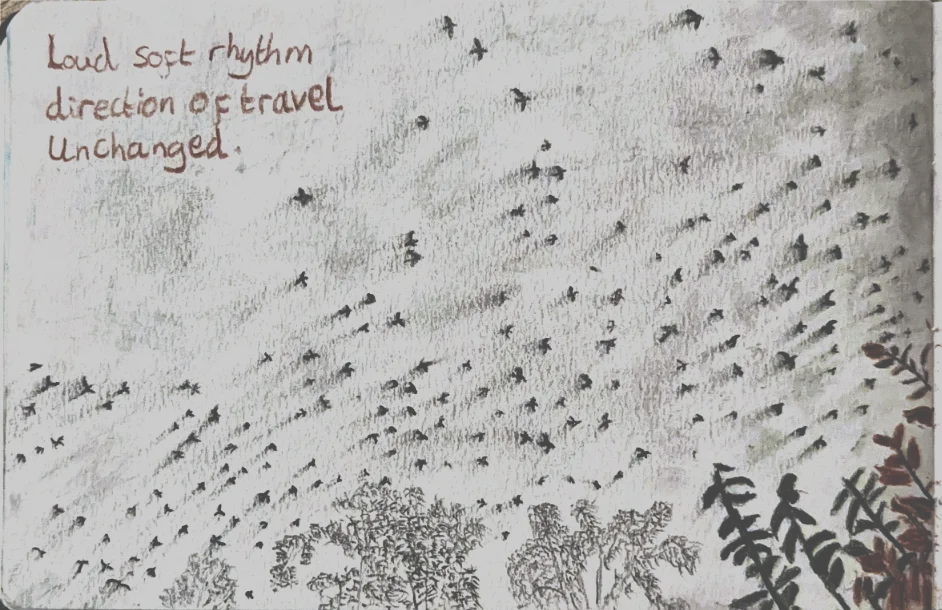 Loud soft rhythm
direction of travel
Unchanged.